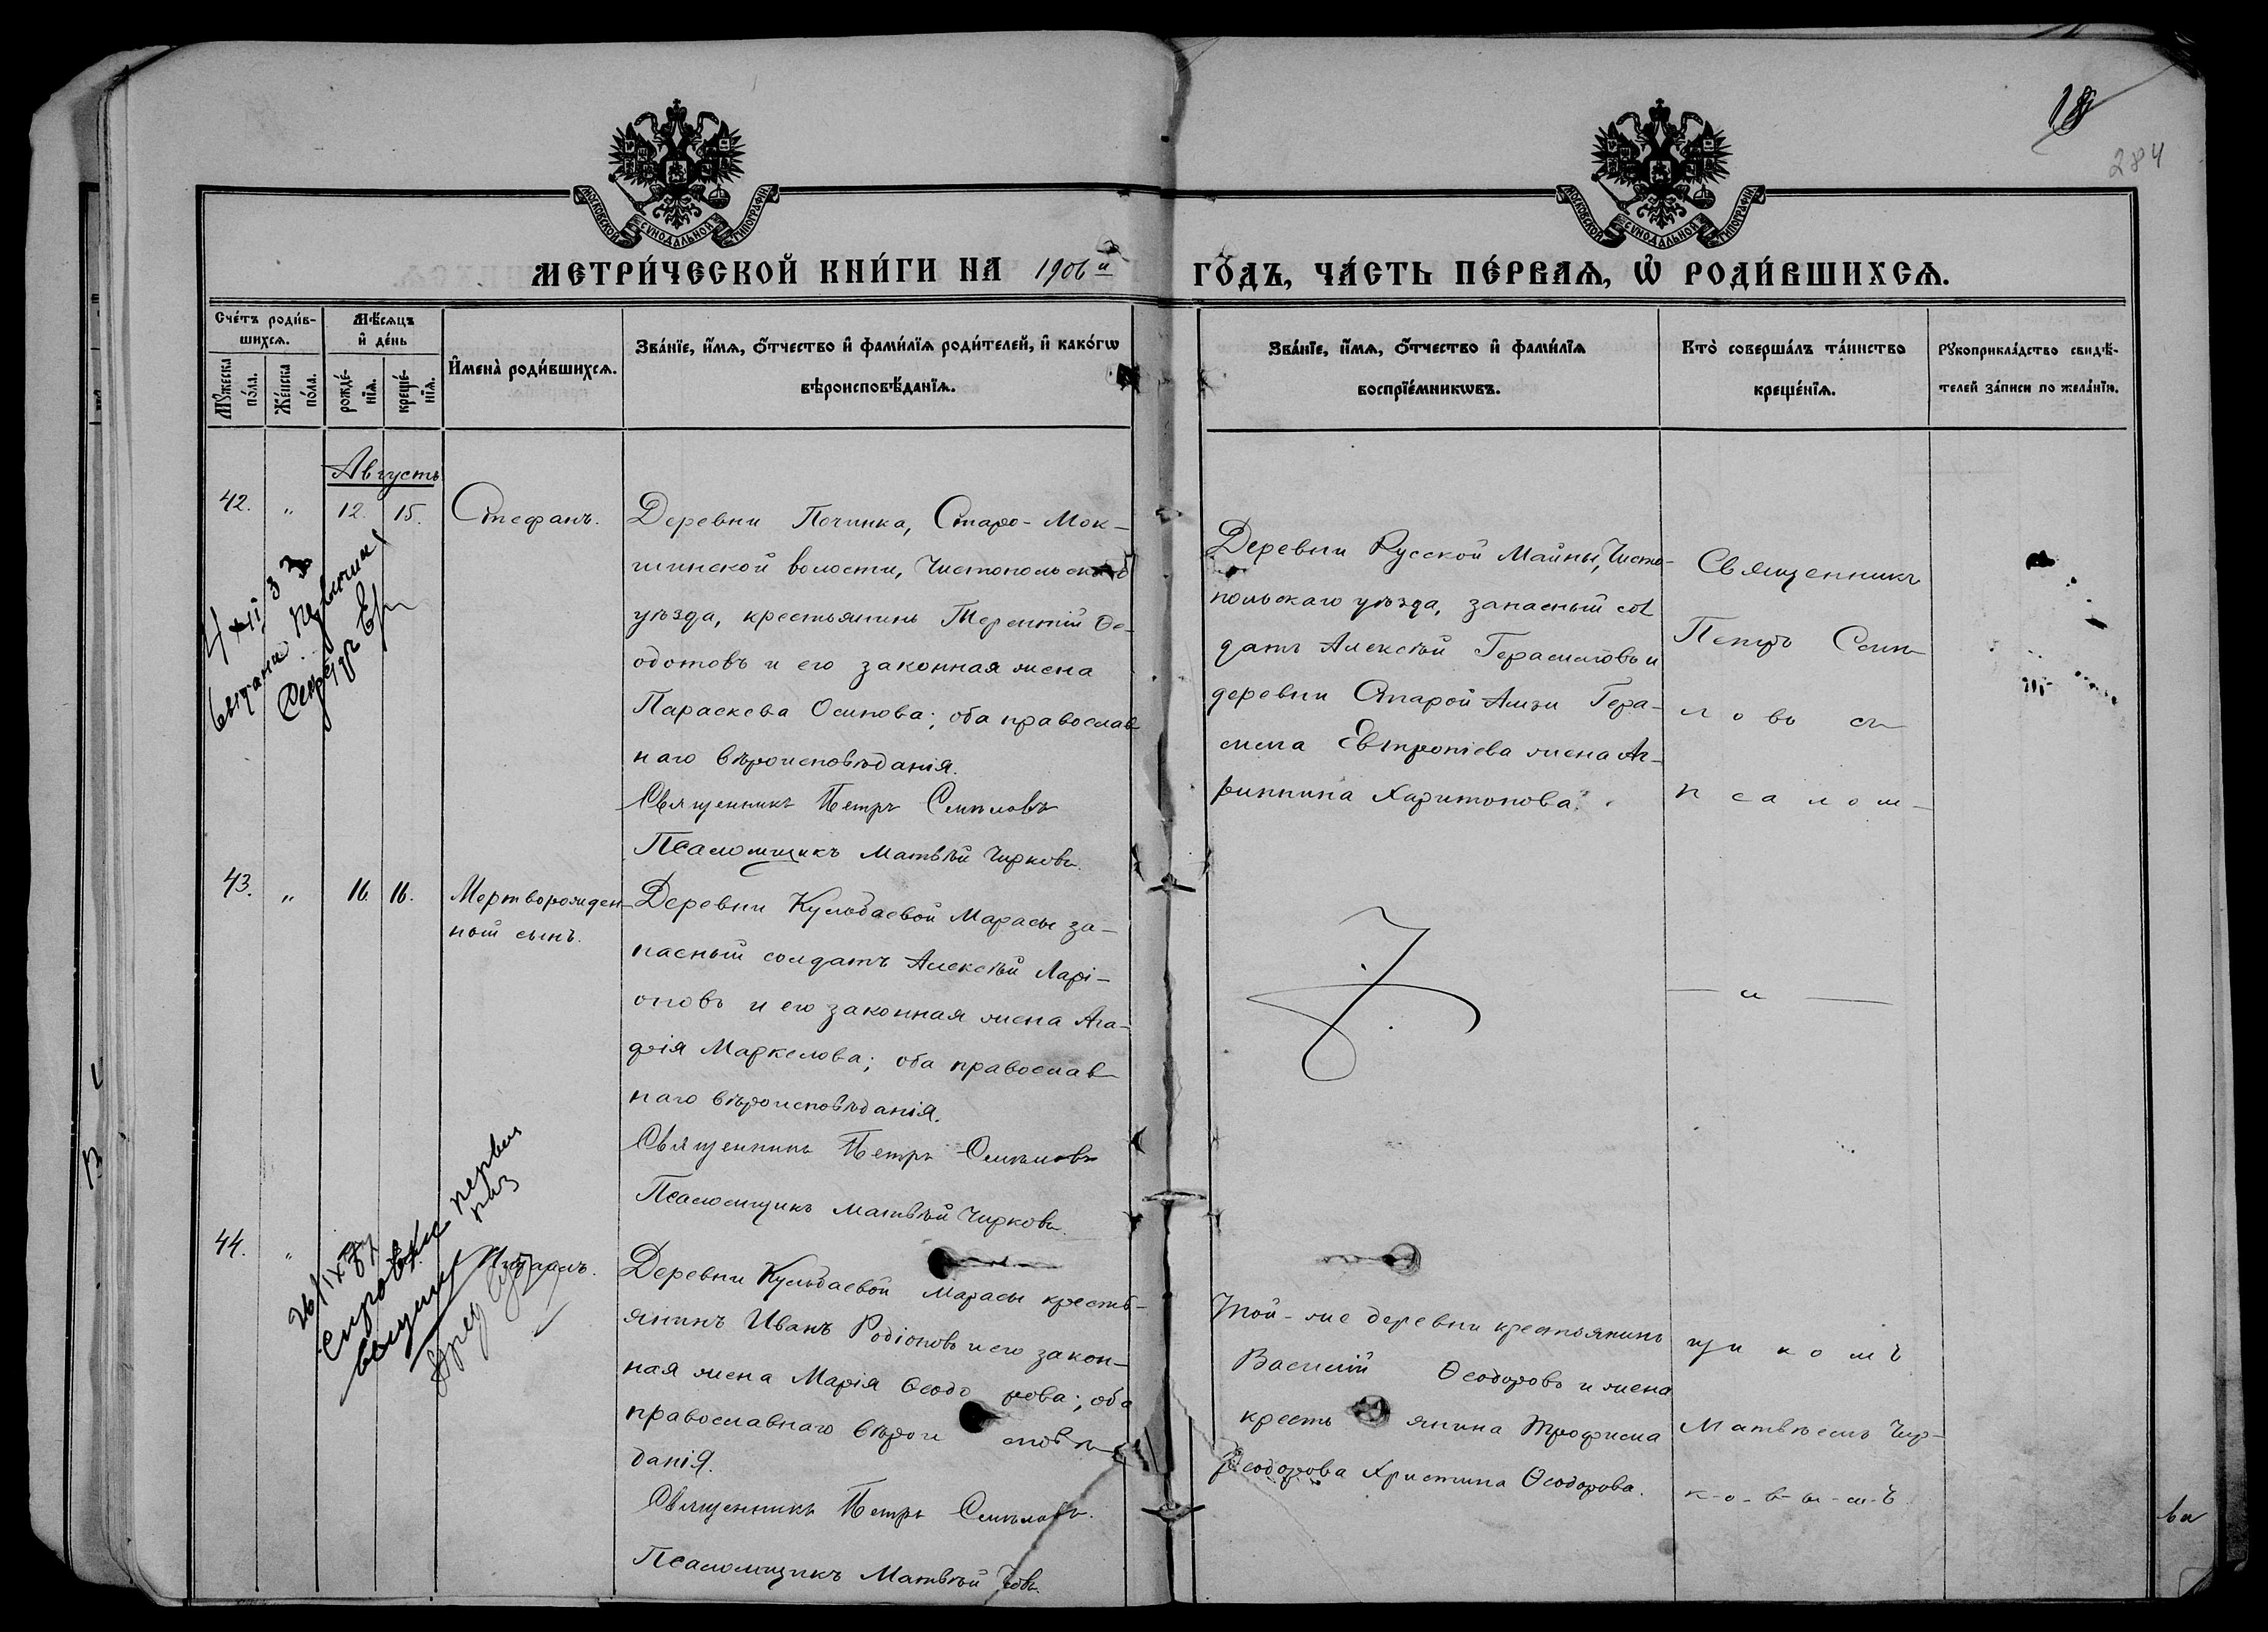 18
284
МОСКОВСКОЙ СѴНОДАЛЬНОЙ ТИПОГРАФІИ
МОСКОВСКОЙ СѴНОДАЛЬНОЙ ТИПОГРАФІИ
МЕТРИ́ЧЕСКОЙ КНИ́ГИ НА 1906 й ГО́ДЪ, ЧА́СТЬ ПЕ́РВАѦ, Ѡ҆ РОДИ́ВШИХСѦ.
Сче́тъ роди́в-
шихсѧ.
Мꙋ́жеска по́ла.
Же́нска по́ла.
Мѣ́сѧцъ
и҆ де́нь
рожде́-
нїѧ.
креще́-
нїѧ.
И҆мена̀ роди́вшихсѧ.
Зва́нїе, и҆́мѧ, ѻ҆́тчество и҆ фами́лїѧ роди́телей, и҆ како́гѡ
вѣроисповѣ́данїѧ.
Зва́нїе, и҆́мѧ, ѻ҆́тчество и҆ фами́лїѧ
воспрїе́мникѡвъ.
Кто̀ соверша́лъ та́инство
креще́нїѧ.
Рꙋкоприкла́дство свидѣ́-
телей за́писи по жела́нїю.
Августъ
42. " 12. 15. Стефанъ.
Деревни Починка, Старо-Мок-
шинской волости, Чистопольскаго
уѣзда, крестьянинъ Терентій Ѳе-
одотовъ и его законная жена
Параскева Осипова; оба православ
наго вѣроисповѣданія.
Священникъ Петръ
Псаломщикъ Матвѣй Чирковъ.
Деревни Русской Майны, Чисто-
польскаго уѣзда, запасный сол
датъ Алексѣй Герасимовъ и
деревни Старой Амзи Гера-
сима Евтропіева жена Аг-
риппина Харитонова.
Священникъ
Петръ
ловъ съ
псалом-
43. " 16. 16. Мертворожден-
ный сынъ.
Деревни Кульбаевой Марасы за-
пасный солдатъ Алексѣй Ларі-
оновъ и его законная жена Ага-
фія Маркелова; оба православ
наго вѣроисповѣданія.
Священникъ Петръ
Псаломщикъ Матвѣй Чирковъ.
— и —
44. "
26/IX 37
справки
первый
раз
Деревни Кульбаевой Марасы кресть-
янинъ Иванъ Родіоновъ и его закон-
ная жена Марія Ѳеодорова; оба
православнаго вѣроисповѣ-
данія.
Священникъ Петръ
Псаломщикъ Матвѣй
Той-же деревни крестьянинъ
Василій Ѳеодоровъ и жена
крестьянина Трофима
Ѳеодорова Христина Ѳеодорова.
щикомъ
Матвѣемъ Чир-
к-о-в-ы-м-ъ.